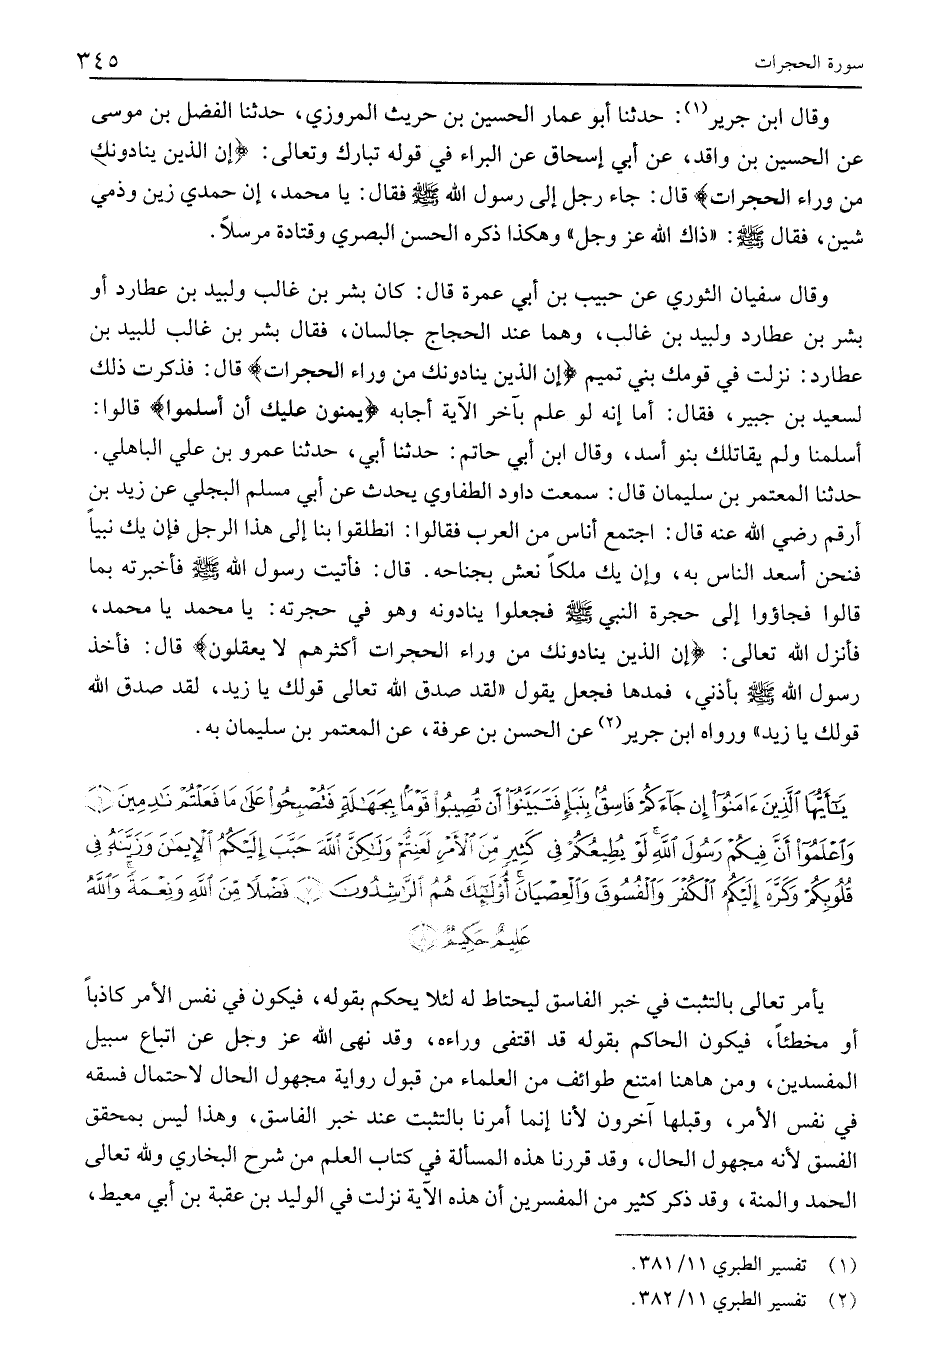 سورة الحجرات
٣٤٥
وقال ابن جرير(١): حدثنا أبو عمار الحسين بن حريث المروزي، حدثنا الفضل بن موسى
عن الحسين بن واقد، عن أبي إسحاق عن البراء في قوله تبارك وتعالى: ﴿إن الذين ينادونك
من وراء الحجرات﴾ قال: جاء رجل إلى رسول الله ﷺ فقال: يا محمد، إن حمدي زين وذمي
شين، فقال ﷺ: «ذاك الله عز وجل» وهكذا ذكره الحسن البصري وقتادة مرسلاً.
وقال سفيان الثوري عن حبيب بن أبي عمرة قال: كان بشر بن غالب ولبيد بن عطارد أو
بشر بن عطارد ولبيد بن غالب، وهما عند الحجاج جالسان، فقال بشر بن غالب للبيد بن
عطارد: نزلت في قومك بني تميم ﴿إن الذين ينادونك من وراء الحجرات﴾ قال: فذكرت ذلك
لسعيد بن جبير، فقال: أما إنه لو علم بآخر الآية أجابه ﴿يمنون عليك أن أسلموا﴾ قالوا:
أسلمنا ولم يقاتلك بنو أسد، وقال ابن أبي حاتم: حدثنا أبي، حدثنا عمرو بن علي الباهلي.
حدثنا المعتمر بن سليمان قال: سمعت داود الطفاوي يحدث عن أبي مسلم البجلي عن زيد بن
أرقم رضي الله عنه قال: اجتمع أناس من العرب فقالوا: انطلقوا بنا إلى هذا الرجل فإن يك نبياً
فنحن أسعد الناس به، وإن يك ملكاً نعش بجناحه. قال: فأتيت رسول الله ﷺ فأخبرته بما
قالوا فجاؤوا إلى حجرة النبي ﷺ فجعلوا ينادونه وهو في حجرته: يا محمد يا محمد،
فأنزل الله تعالى: ﴿إن الذين ينادونك من وراء الحجرات أكثرهم لا يعقلون﴾ قال: فأخذ
رسول الله ﷺ بأذني، فمدها فجعل يقول «لقد صدق الله تعالى قولك يا زيد، لقد صدق الله
قولك يا زيد» ورواه ابن جرير(٢) عن الحسن بن عرفة، عن المعتمر بن سليمان به.
يَٰٓأَيُّهَا ٱلَّذِينَ ءَامَنُوٓا۟ إِن جَآءَكُمْ فَاسِقٌۢ بِنَبَإٍ فَتَبَيَّنُوٓا۟ أَن تُصِيبُوا۟ قَوْمًۢا بِجَهَٰلَةٍ فَتُصْبِحُوا۟ عَلَىٰ مَا فَعَلْتُمْ نَٰدِمِينَ ٦
وَٱعْلَمُوٓا۟ أَنَّ فِيكُمْ رَسُولَ ٱللَّهِ ۚ لَوْ يُطِيعُكُمْ فِى كَثِيرٍ مِّنَ ٱلْأَمْرِ لَعَنِتُّمْ وَلَٰكِنَّ ٱللَّهَ حَبَّبَ إِلَيْكُمُ ٱلْإِيمَٰنَ وَزَيَّنَهُۥ فِى
قُلُوبِكُمْ وَكَرَّهَ إِلَيْكُمُ ٱلْكُفْرَ وَٱلْفُسُوقَ وَٱلْعِصْيَانَ ۚ أُو۟لَٰٓئِكَ هُمُ ٱلرَّٰشِدُونَ ٧ فَضْلًا مِّنَ ٱللَّهِ وَنِعْمَةً ۚ وَٱللَّهُ
عَلِيمٌ حَكِيمٌ ٨
يأمر تعالى بالتثبت في خبر الفاسق ليحتاط له لئلا يحكم بقوله، فيكون في نفس الأمر كاذباً
أو مخطئاً، فيكون الحاكم بقوله قد اقتفى وراءه، وقد نهى الله عز وجل عن اتباع سبيل
المفسدين، ومن هاهنا امتنع طوائف من العلماء من قبول رواية مجهول الحال لاحتمال فسقه
في نفس الأمر، وقبلها آخرون لأنا إنما أمرنا بالتثبت عند خبر الفاسق، وهذا ليس بمحقق
الفسق لأنه مجهول الحال، وقد قررنا هذه المسألة في كتاب العلم من شرح البخاري ولله تعالى
الحمد والمنة، وقد ذكر كثير من المفسرين أن هذه الآية نزلت في الوليد بن عقبة بن أبي معيط،
(١) تفسير الطبري ١١/ ٣٨١.
(٢) تفسير الطبري ١١/ ٣٨٢.